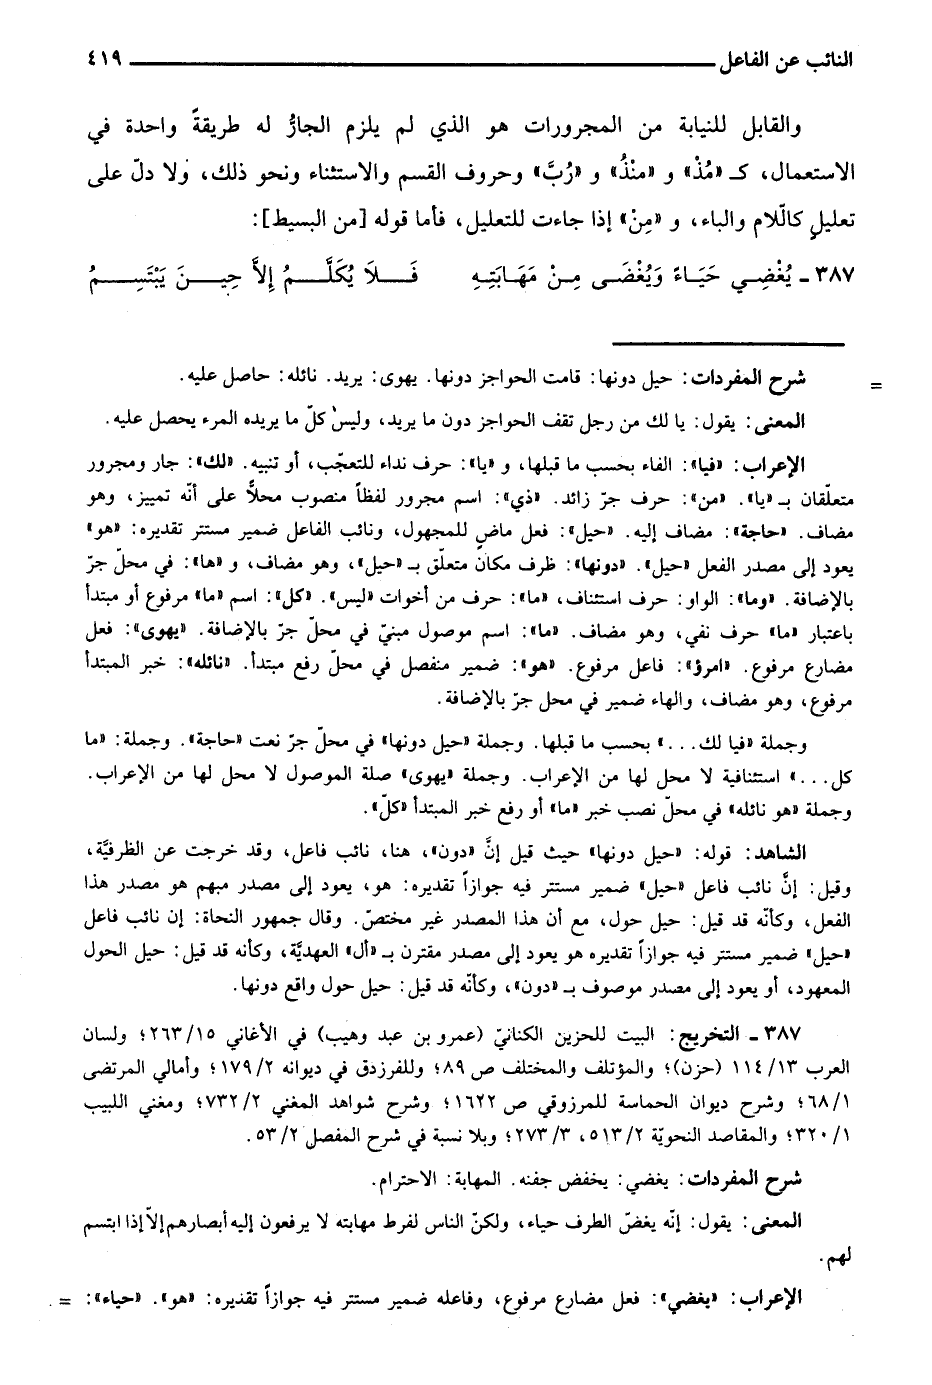 النائب عن الفاعل ٤١٩
والقابل للنيابة من المجرورات هو الذي لم يلزم الجارُّ له طريقةً واحدة في
الاستعمال، كـ «مُذْ» و «منْذُ» و «رُبَّ» وحروف القسم والاستثناء ونحو ذلك، ولا دلّ على
تعليلٍ كاللام والباء، و «مِنْ» إذا جاءت للتعليل، فأما قوله [من البسيط]:
٣٨٧ - يُغْضِي حَيَاءً وَيُغْضَى مِنْ مَهَابَتِهِ فَلَا يُكَلَّمُ إِلاَّ حِينَ يَبْتَسِمُ
= شرح المفردات: حيل دونها: قامت الحواجز دونها. يهوى: يريد. نائله: حاصل عليه.
المعنى: يقول: يا لك من رجل تقف الحواجز دون ما يريد، وليس كلّ ما يريده المرء يحصل عليه.
الإعراب: «فيا»: الفاء بحسب ما قبلها، و «يا»: حرف نداء للتعجّب، أو تنبيه. «لك»: جار ومجرور
متعلّقان بـ «يا». «من»: حرف جرّ زائد. «ذي»: اسم مجرور لفظاً منصوب محلاًّ على أنّه تمييز، وهو
مضاف. «حاجة»: مضاف إليه. «حيل»: فعل ماضٍ للمجهول، ونائب الفاعل ضمير مستتر تقديره: «هو»
يعود إلى مصدر الفعل «حيل». «دونها»: ظرف مكان متعلّق بـ «حيل»، وهو مضاف، و «ها»: في محلّ جرّ
بالإضافة. «وما»: الواو: حرف استئناف، «ما»: حرف من أخوات «ليس». «كل»: اسم «ما» مرفوع أو مبتدأ
باعتبار «ما» حرف نفي، وهو مضاف. «ما»: اسم موصول مبنيّ في محلّ جرّ بالإضافة. «يهوى»: فعل
مضارع مرفوع. «امرؤ»: فاعل مرفوع. «هو»: ضمير منفصل في محلّ رفع مبتدأ. «نائله»: خبر المبتدأ
مرفوع، وهو مضاف، والهاء ضمير في محل جرّ بالإضافة.
وجملة «فيا لك...» بحسب ما قبلها. وجملة «حيل دونها» في محلّ جرّ نعت «حاجة». وجملة: «ما
كل...» استئنافية لا محل لها من الإعراب. وجملة «يهوى» صلة الموصول لا محل لها من الإعراب.
وجملة «هو نائله» في محلّ نصب خبر «ما» أو رفع خبر المبتدأ «كلّ».
الشاهد: قوله: «حيل دونها» حيث قيل إنَّ «دون»، هنا، نائب فاعل، وقد خرجت عن الظرفيَّة،
وقيل: إنَّ نائب فاعل «حيل» ضمير مستتر فيه جوازاً تقديره: هو، يعود إلى مصدر مبهم هو مصدر هذا
الفعل، وكأنّه قد قيل: حيل حول، مع أن هذا المصدر غير مختصّ. وقال جمهور النحاة: إن نائب فاعل
«حيل» ضمير مستتر فيه جوازاً تقديره هو يعود إلى مصدر مقترن بـ «أل» العهديَّة، وكأنه قد قيل: حيل الحول
المعهود، أو يعود إلى مصدر موصوف بـ «دون»، وكأنّه قد قيل: حيل حول واقع دونها.
٣٨٧ - التخريج: البيت للحزين الكنانيّ (عمرو بن عبد وهيب) في الأغاني ٢٦٣/١٥؛ ولسان
العرب ١١٤/١٣ (حزن)؛ والمؤتلف والمختلف ص ٨٩؛ وللفرزدق في ديوانه ١٧٩/٢؛ وأمالي المرتضى
٦٨/١؛ وشرح ديوان الحماسة للمرزوقي ص ١٦٢٢؛ وشرح شواهد المغني ٧٣٢/٢؛ ومغني اللبيب
٣٢٠/١؛ والمقاصد النحويّة ٥١٣/٢، ٢٧٣/٣؛ وبلا نسبة في شرح المفصل ٥٣/٢.
شرح المفردات: يغضي: يخفض جفنه. المهابة: الاحترام.
المعنى: يقول: إنّه يغضّ الطرف حياء، ولكنّ الناس لفرط مهابته لا يرفعون إليه أبصارهم إلاّ إذا ابتسم
لهم.
الإعراب: «يغضي»: فعل مضارع مرفوع، وفاعله ضمير مستتر فيه جوازاً تقديره: «هو». «حياء»: =